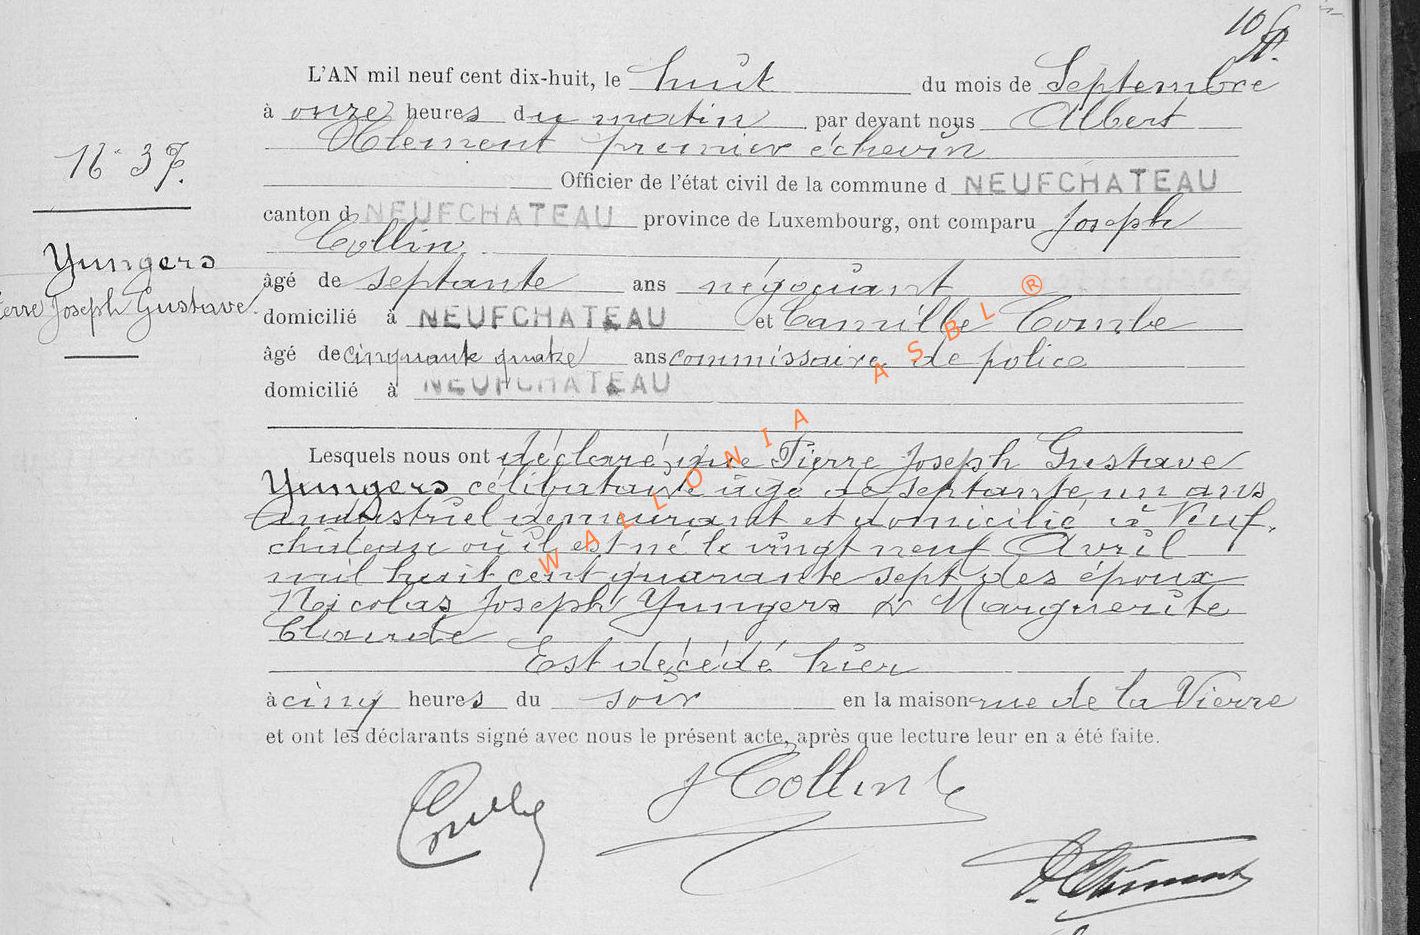 L'AN mil neuf cent dix-huit, le huit du mois de Septembre
à onze heures du matin par devant nous Albert
Clement premier échevin
N° 37.
Officier de l'état civil de la commune d NEUFCHATEAU
canton d NEUFCHATEAU province de Luxembourg, ont comparu Joseph
Collin
Yungers
Pierre Joseph Gustave.
âgé de septante ans négociant
domicilié à NEUFCHATEAU et Camille Comble
âgé de cinquante quatre ans commissaire de police
domicilié à NEUFCHATEAU
Lesquels nous ont déclaré que Pierre Joseph Gustave
Yungers célibataire âgé de septante un ans
industriel demeurant et domicilié à Neuf-
château où il est né le vingt neuf Avril
mil huit cent quarante sept des époux
Nicolas Joseph Yungers & Marguerite
Claude
Est décédé hier
à cinq heures du soir en la maison rue de la Vierre
et ont les déclarants signé avec nous le présent acte, après que lecture leur en a été faite.
J Collin
A. Clément
WALLONIA ASBL ®